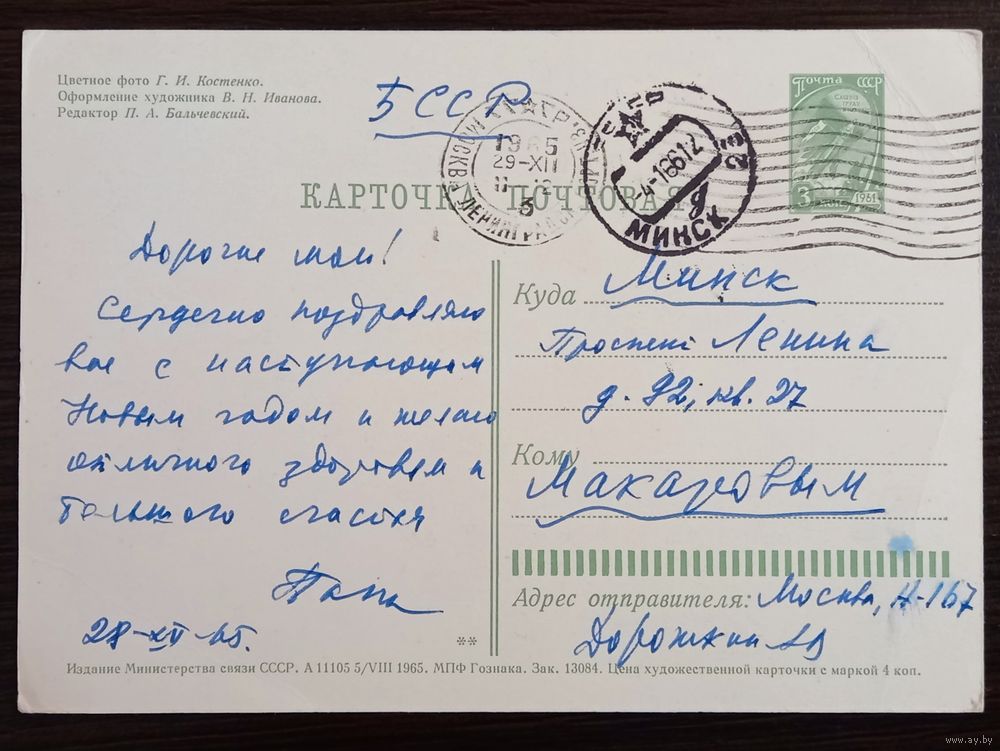 Цветное фото Г. И. Костенко.
Оформление художника В. Н. Иванова.
Редактор П. А. Бальчевский.
БССР
Почта СССР
3
1961
МОСКВА
1965
29-XII
3
ЛЕНИНГРАДСК
-4-1661Z
МИНСК
КАРТОЧКА ПОЧТОВАЯ
Дорогие мои!
Сердечно поздравляю
вас с наступающим
Новым годом и желаю
отличного здоровья и
большого счастья
Папа
28-XII-65.
Куда Минск
Проспект Ленина
д. 92, кв. 27
Кому
Макаровым
Адрес отправителя: Москва, А-167
Дорожкин
**
Издание Министерства связи СССР. А 11105 5/VIII 1965. МПФ Гознака. Зак. 13084. Цена художественной карточки с маркой 4 коп.
www.ay.by